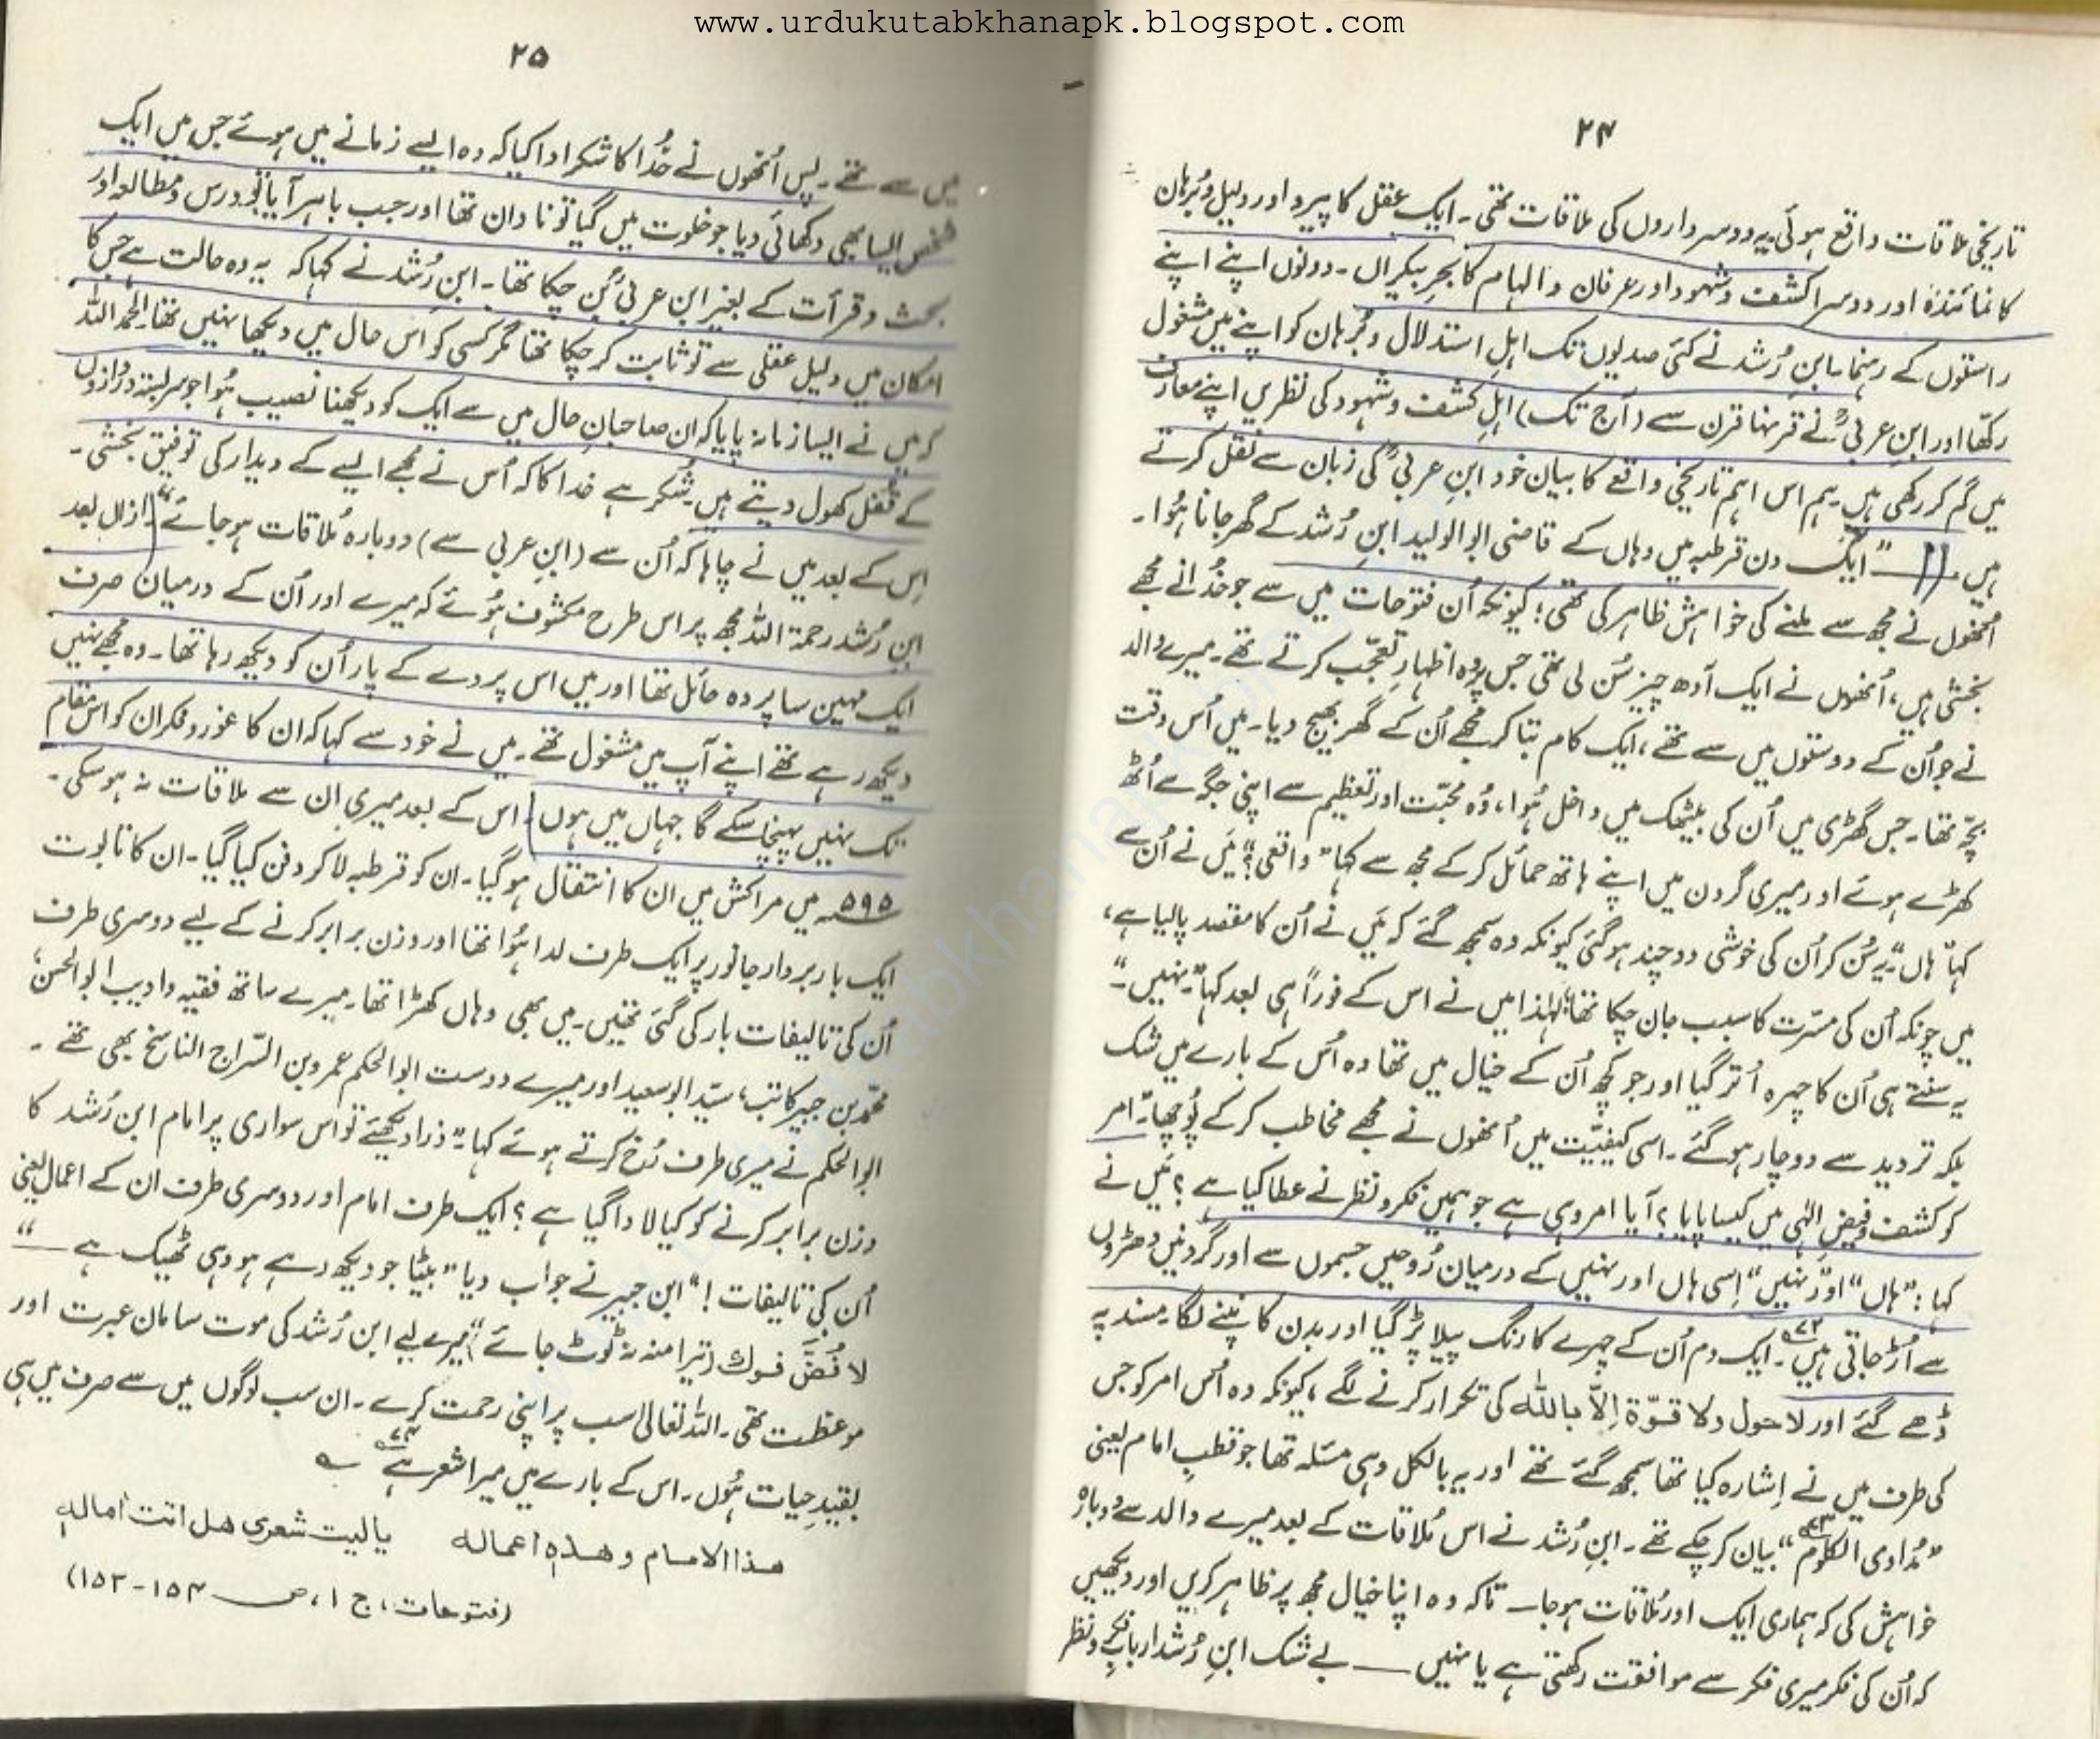 www.urdukutabkhanapk.blogspot.com
۲۴
تاریخی ملاقات واقع ہوئی۔ یہ دو سرداروں کی ملاقات تھی۔ ایک عقل کا پیرو اور دلیل و برہان
کا نمائندہ اور دوسرا کشف و شہود اور عرفان و الہام کا بحرِ بیکراں۔ دونوں اپنے اپنے
راستوں کے رہنما۔ ابنِ رُشد نے کئی صدیوں تک اہلِ استدلال و بُرہان کو اپنے میں مشغول
رکھا اور ابنِ عربیؒ نے قرنہا قرن سے (آج تک) اہلِ کشف و شہود کی نظریں اپنے معارف
میں گم کر رکھی ہیں۔ ہم اس اہم تاریخی واقعے کا بیان خود ابنِ عربیؒ کی زبان سے نقل کرتے
ہیں۔ — "ایک دن قرطبہ میں وہاں کے قاضی ابوالولید ابنِ رُشد کے گھر جانا ہُوا۔
اُنھوں نے مجھ سے ملنے کی خواہش ظاہر کی تھی؛ کیونکہ اُن فتوحات میں سے جو خُدا نے مجھے
بخشی ہیں، اُنھوں نے ایک آدھ چیز سُن لی تھی جس پر وہ اظہارِ تعجّب کرتے تھے۔ میرے والد
نے جو اُن کے دوستوں میں سے تھے، ایک کام بتا کر مجھے اُن کے گھر بھیج دیا۔ میں اُس وقت
بچّہ تھا۔ جس گھڑی میں اُن کی بیٹھک میں داخل ہُوا، وُہ محبّت اور تعظیم سے اپنی جگہ سے اُٹھ
کھڑے ہوئے اور میری گردن میں اپنے ہاتھ حمائل کر کے مجھ سے کہا "واقعی؟" مَیں نے اُن سے
کہا "ہاں" یہ سُن کر اُن کی خوشی دو چند ہو گئی کیونکہ وہ سمجھ گئے کہ مَیں نے اُن کا مقصد پا لیا ہے،
میں چونکہ اُن کی مسرّت کا سبب جان چکا تھا؛ لہٰذا میں نے اس کے فوراً ہی بعد کہا "نہیں"۔
یہ سنتے ہی اُن کا چہرہ اُتر گیا اور جو کچھ اُن کے خیال میں تھا وہ اُس کے بارے میں شک
بلکہ تردید سے دوچار ہو گئے۔ اسی کیفیّت میں اُنھوں نے مجھے مخاطب کر کے پُوچھا: "امر
کو کشف و فیضِ الٰہی میں کیسا پایا؟ آیا امر وہی ہے جو ہمیں فکر و نظر نے عطا کیا ہے؟ مَیں نے
کہا: "ہاں" اور "نہیں" اِسی ہاں اور نہیں کے درمیان رُوحیں جسموں سے اور گردنیں دھڑوں
سے اُڑ جاتی ہیں۷۲۔ ایک دم اُن کے چہرے کا رنگ پیلا پڑ گیا اور بدن کانپنے لگا۔ مسند پہ
ڈھے گئے اور لاحول ولا قوّۃ اِلّا باللہ کی تکرار کرنے لگے، کیونکہ وہ اُس امر کو جس
کی طرف میں نے اِشارہ کیا تھا سمجھ گئے تھے اور یہ بالکل وہی مسئلہ تھا جو قطبِ امام یعنی
"مُداوی الکلوم۷۳" بیان کر چکے تھے۔ ابنِ رُشد نے اس مُلاقات کے بعد میرے والد سے دوبارہ
خواہش کی کہ ہماری ایک اور مُلاقات ہو جائے تاکہ وہ اپنا خیال مجھ پر ظاہر کریں اور دیکھیں
کہ اُن کی فکر میری فکر سے موافقت رکھتی ہے یا نہیں — بے شک ابنِ رُشد اربابِ فکر و نظر
۲۵
میں سے تھے۔ پس اُنھوں نے خُدا کا شکر ادا کیا کہ وہ ایسے زمانے میں ہوئے جس میں ایک
شخص ایسا بھی دکھائی دیا جو خلوت میں گیا تو نادان تھا اور جب باہر آیا تو درس و مطالعہ اور
بحث و قرأت کے بغیر ابنِ عربیؒ بن چکا تھا۔ ابنِ رُشد نے کہا کہ یہ وہ حالت ہے جس کا
امکان میں دلیلِ عقلی سے تو ثابت کر چکا تھا مگر کسی کو اس حال میں دیکھا نہیں تھا۔ الحمدللہ
کہ میں نے ایسا زمانہ پایا کہ ان صاحبانِ حال میں سے ایک کو دیکھنا نصیب ہُوا جو سربستہ دروازوں
کے قُفل کھول دیتے ہیں۔ شُکر ہے خدا کا کہ اُس نے مجھے ایسے کے دیدار کی توفیق بخشی۔
اِس کے بعد میں نے چاہا کہ اُن سے (ابنِ عربی سے) دوبارہ مُلاقات ہو جائے"۔ ازاں بعد
ابنِ رُشد رحمۃ اللہ مجھ پر اس طرح مکشوف ہُوئے کہ میرے اور اُن کے درمیان صرف
ایک مہین سا پردہ حائل تھا اور میں اس پردے کے پار اُن کو دیکھ رہا تھا۔ وہ مجھے نہیں
دیکھ رہے تھے اپنے آپ میں مشغول تھے۔ میں نے خود سے کہا کہ ان کا غور و فکر ان کو اس مقام
تک نہیں پہنچا سکے گا جہاں میں ہوں۔ اس کے بعد میری ان سے ملاقات نہ ہو سکی۔
۵۹۵ھ میں مراکش میں ان کا انتقال ہو گیا۔ ان کو قرطبہ لا کر دفن کیا گیا۔ ان کا تابوت
ایک باربردار جانور پر ایک طرف لدا ہُوا تھا اور وزن برابر کرنے کے لیے دوسری طرف
اُن کی تالیفات بار کی گئی تھیں۔ میں بھی وہاں کھڑا تھا۔ میرے ساتھ فقیہ و ادیب ابوالحسن
محمّد بن جبیر کاتب، سیّد ابوسعید اور میرے دوست ابوالحکم عمرو بن السّراج الناسخ بھی تھے۔
ابوالحکم نے میری طرف رُخ کرتے ہوئے کہا: "ذرا دیکھئے تو اس سواری پر امام ابن رُشد کا
وزن برابر کرنے کو کیا لادا گیا ہے؟ ایک طرف امام اور دوسری طرف ان کے اعمال یعنی
اُن کی تالیفات!" ابن جبیر نے جواب دیا "بیٹا جو دیکھ رہے ہو وہی ٹھیک ہے —"
لا فُضَّ فوك (تیرا منہ نہ ٹوٹ جائے) میرے لیے ابن رُشد کی موت سامانِ عبرت اور
موعظت تھی۔ اللہ تعالیٰ سب پر اپنی رحمت کرے۔ ان سب لوگوں میں سے صرف میں ہی
بقیدِ حیات ہُوں۔ اس کے بارے میں میرا شعر ہے۷۴ ؎
هذا الامام وهذه اعماله یا لیت شعری هل اتت آماله
(فتوحات، ج ۱، ص ۱۵۴-۱۵۳)